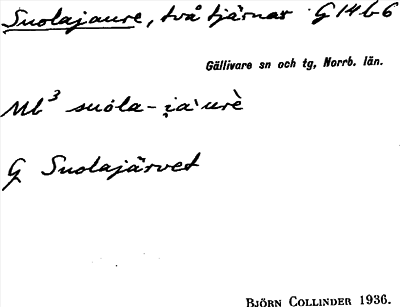 Suolajaure, två tjärnar G14b6
Gällivare sn och tg, Norrb. län.
Mb³ suola-i̯a`urè
G Suolajärvet
BJÖRN COLLINDER 1936.